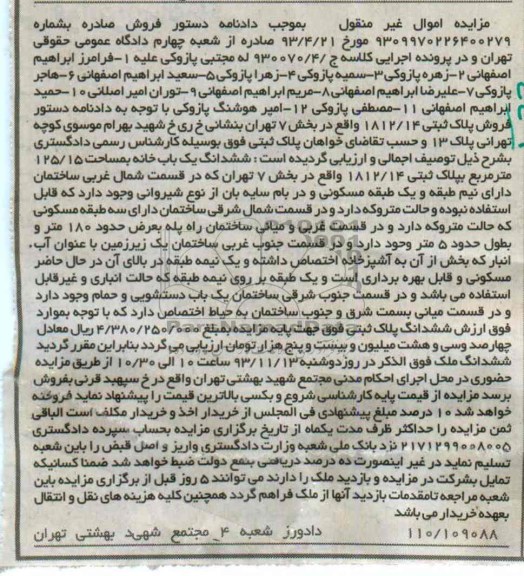 مزایده اموال غیر منقول بموجب دادنامه دستور فروش صادره بشماره
۹۳۰۹۹۷۰۲۲۶۴۰۰۲۷۹ مورخ ۹۳/۴/۲۱ صادره از شعبه چهارم دادگاه عمومی حقوقی
تهران و در پرونده اجرایی کلاسه ج/۹۳۰۰۷۰/۴ له مجتبی پازوکی علیه ۱-فرامرز ابراهیم
اصفهانی ۲-زهره پازوکی ۳-سمیه پازوکی ۴-زهرا پازوکی ۵-سعید ابراهیم اصفهانی ۶-هاجر
پازوکی ۷-علیرضا ابراهیم اصفهانی ۸-مریم ابراهیم اصفهانی ۹-توران امیر اصلانی ۱۰-حمید
ابراهیم اصفهانی ۱۱-مصطفی پازوکی ۱۲-امیر هوشنگ پازوکی با توجه به دادنامه دستور
فروش پلاک ثبتی ۱۸۱۲/۱۴ واقع در بخش ۷ تهران بنشانی خ ری خ شهید بهرام موسوی کوچه
تهرانی پلاک ۱۳ و حسب تقاضای خواهان پلاک ثبتی فوق بوسیله کارشناس رسمی دادگستری
بشرح ذیل توصیف اجمالی و ارزیابی گردیده است: ششدانگ یک باب خانه بمساحت ۱۲۵/۱۵
مترمربع بپلاک ثبتی ۱۸۱۲/۱۴ واقع در بخش ۷ تهران که در قسمت شمال غربی ساختمان
دارای نیم طبقه و یک طبقه مسکونی و در بام سایه بان از نوع شیروانی وجود دارد که قابل
استفاده نبوده و حالت متروکه دارد و در قسمت شمال شرقی ساختمان دارای سه طبقه مسکونی
که حالت متروکه دارد و در قسمت غربی و میانی ساختمان راه پله بعرض حدود ۱۸۰ متر و
بطول حدود ۵ متر وجود دارد و در قسمت جنوب غربی ساختمان یک زیرزمین با عنوان آب،
انبار که بخش از آن به آشپزخانه اختصاص داشته و یک نیمه طبقه در بالای آن در حال حاضر
مسکونی و قابل بهره برداری است و یک طبقه بر روی نیمه طبقه که حالت انباری و غیرقابل
استفاده می باشد و در قسمت جنوب شرقی ساختمان یک باب دستشویی و حمام وجود دارد
و در قسمت میانی بسمت شرق و جنوب ساختمان به حیاط اختصاص دارد که با توجه بموارد
فوق ارزش ششدانگ پلاک ثبتی فوق جهت پایه مزایده بمبلغ ۴/۳۸۰/۲۵۰/۰۰۰ ریال معادل
چهارصد وسی و هشت میلیون و بیست و پنج هزار تومان ارزیابی می گردد بنابراین مقرر گردید
ششدانگ ملک فوق الذکر در روز دوشنبه ۹۳/۱۱/۱۳ ساعت ۱۰ الی ۱۰/۳۰ از طریق مزایده
حضوری در محل اجرای احکام مدنی مجتمع شهید بهشتی تهران واقع در خ سپهبد قرنی بفروش
برسد مزایده از قیمت پایه کارشناسی شروع و بکسی بالاترین قیمت را پیشنهاد نماید فروخته
خواهد شد ۱۰ درصد مبلغ پیشنهادی فی المجلس از خریدار اخذ و خریدار مکلف است الباقی
ثمن مزایده را حداکثر ظرف مدت یکماه از تاریخ برگزاری مزایده بحساب سپرده دادگستری
۲۱۷۱۲۹۹۰۰۸۰۰۵ نزد بانک ملی شعبه وزارت دادگستری واریز و اصل قبض را باین شعبه
تسلیم نماید در غیر اینصورت ده درصد دریافتی بنفع دولت ضبط خواهد شد ضمنا کسانیکه
تمایل بشرکت در مزایده و بازدید ملک را دارند می توانند ۵ روز قبل از برگزاری مزایده باین
شعبه مراجعه تامقدمات بازدید آنها از ملک فراهم گردد همچنین کلیه هزینه های نقل و انتقال
بعهده خریدار می باشد
۱۱۰/۱۰۹۰۸۸ دادورز شعبه ۴ مجتمع شهید بهشتی تهران